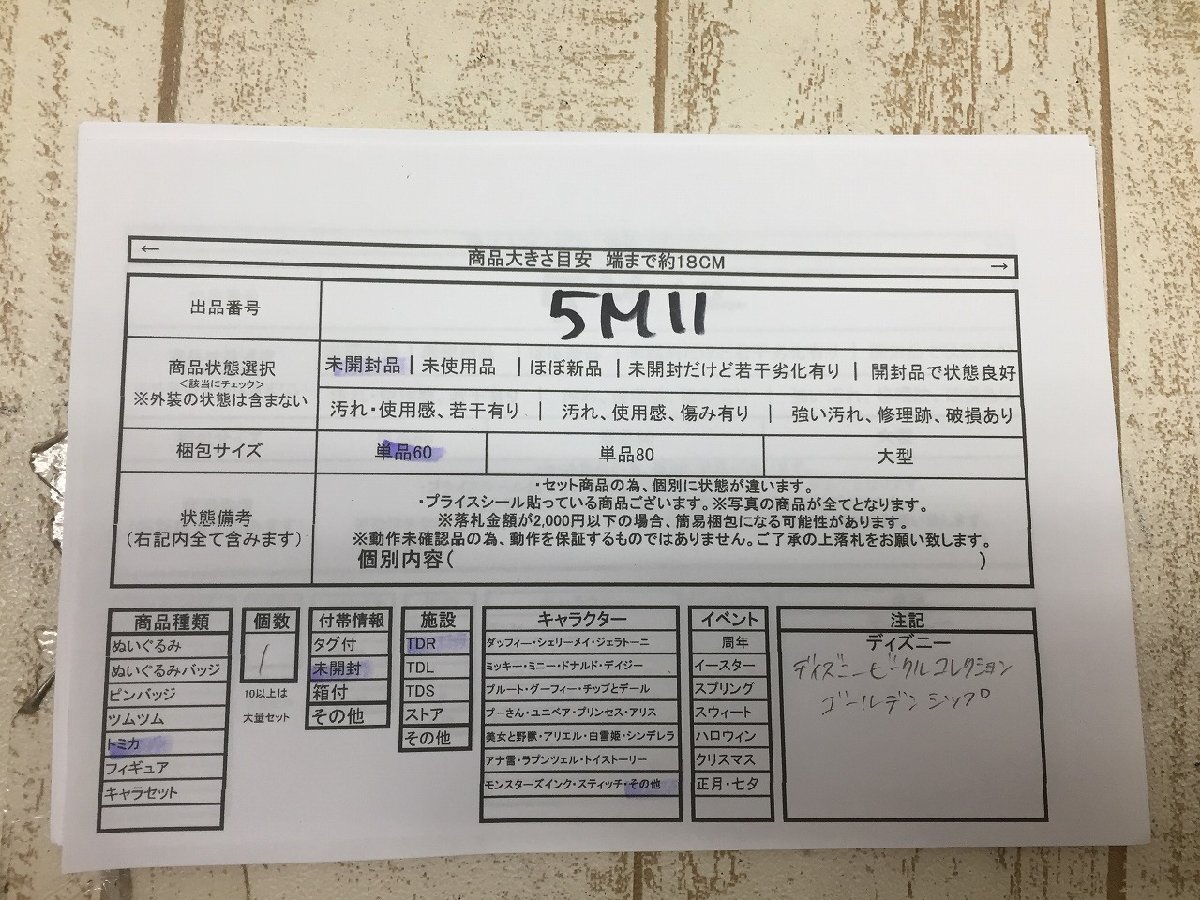 ← 商品大きさ目安 端まで約18CM →
出品番号 5M11
商品状態選択
<該当にチェック>
※外装の状態は含まない
未開封品 | 未使用品 | ほぼ新品 | 未開封だけど若干劣化有り | 開封品で状態良好
汚れ・使用感、若干有り | 汚れ、使用感、傷み有り | 強い汚れ、修理跡、破損あり
梱包サイズ 単品60 単品80 大型
状態備考
(右記内全て含みます)
・セット商品の為、個別に状態が違います。
・プライスシール貼っている商品ございます。※写真の商品が全てとなります。
※落札金額が2,000円以下の場合、簡易梱包になる可能性があります。
※動作未確認品の為、動作を保証するものではありません。ご了承の上落札をお願い致します。
個別内容( )
商品種類
ぬいぐるみ
ぬいぐるみバッジ
ピンバッジ
ツムツム
トミカ
フィギュア
キャラセット
個数
1
10以上は
大量セット
付帯情報
タグ付
未開封
箱付
その他
施設
TDR
TDL
TDS
ストア
その他
キャラクター
ダッフィー・シェリーメイ・ジェラトーニ
ミッキー・ミニー・ドナルド・デイジー
プルート・グーフィー・チップとデール
プーさん・ユニベア・プリンセス・アリス
美女と野獣・アリエル・白雪姫・シンデレラ
アナ雪・ラプンツェル・トイストーリー
モンスターズインク・スティッチ・その他
イベント
周年
イースター
スプリング
スウィート
ハロウィン
クリスマス
正月・七夕
注記
ディズニー
ディズニービークルコレクション
ゴールデンシップ